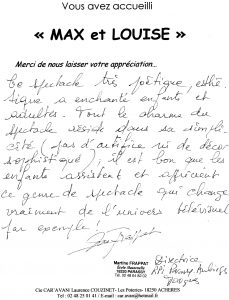 Vous avez accueilli
« MAX et LOUISE »
Merci de nous laisser votre appréciation...
Ce spectacle très poétique, esthé-
tique a enchanté enfants et
adultes. Tout le charme du
spectacle réside dans sa simpli-
cité (pas d'artifice ni de décor
sophistiqué) ; il est bon que les
enfants assistent et apprécient
ce genre de spectacle qui change
vraiment de l'univers télévisuel
par exemple !
Martine FRAPPAT
Directrice
École
18220 PARASSY
Cie CAR'AVAN' Laurence COUZINET- Les Poteries- 18250 ACHERES
Tel : 02 48 25 01 41 / E-mail : car.avan@hotmail.fr